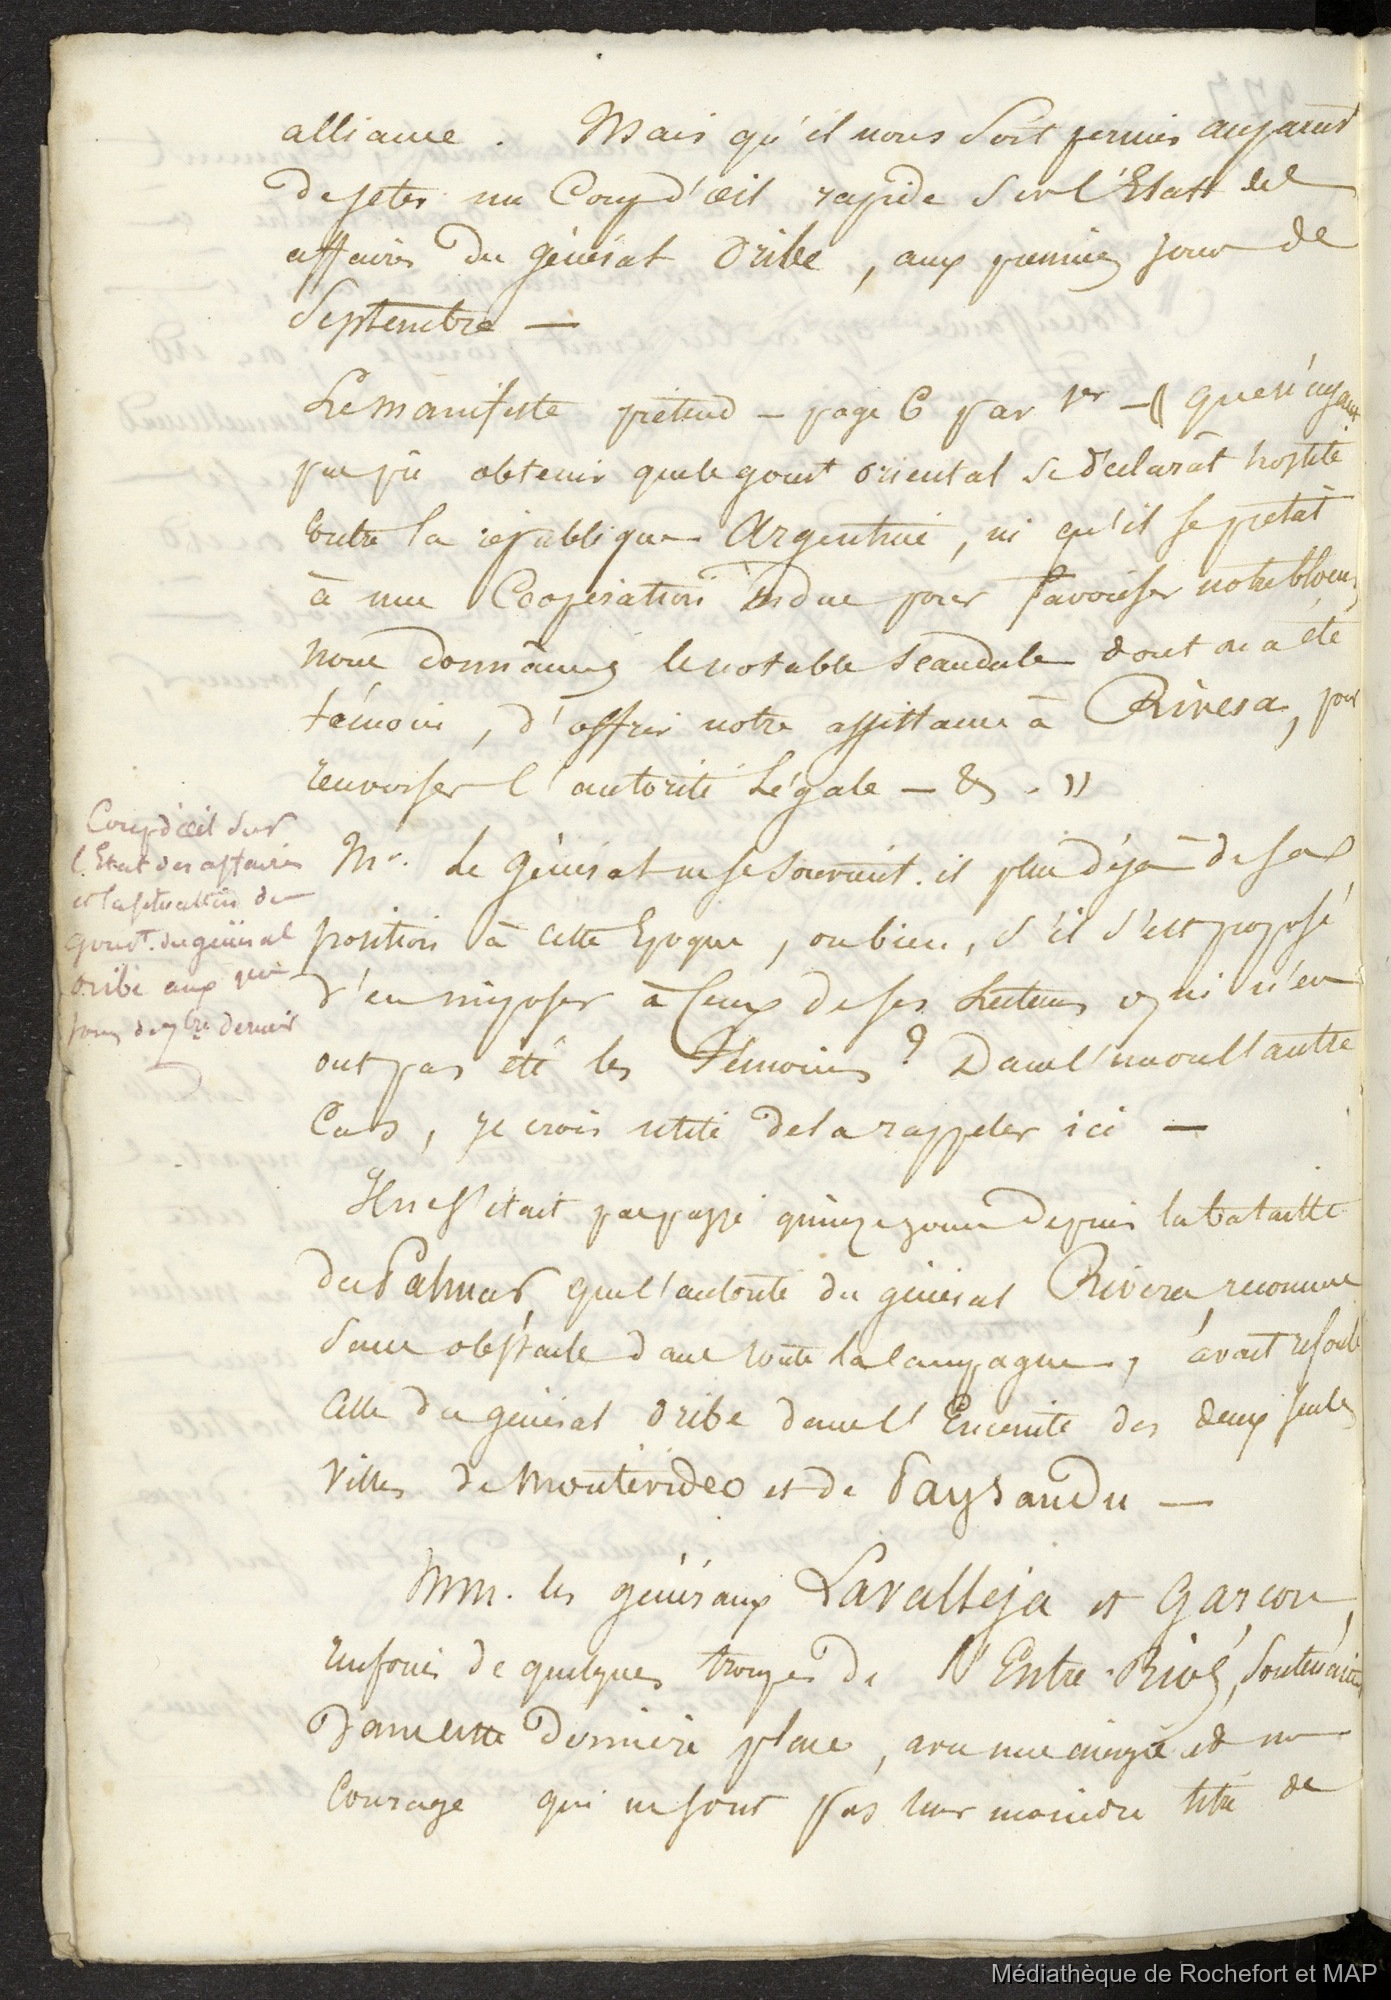 alliance. Mais qu'il nous soit permis auparavt
de jeter un Coup d'œil rapide sur l'Etat des
affaires du général Oribe, aux premiers jours de
Septembre —
Le manifeste prétend — page 6 par 1er — (( que n'ayant
pas pû obtenir que le gouvt oriental se déclarât hostile
Contre la république Argentine, ni qu'il se pretât
à une Coopération indue pour favoriser notre blocus,
nous donnâmes le notable scandale dont on a été
témoin, d'offrir notre assistance à Rivera, pour
renverser l'autorité Légale — &. ))
Coup d'œil sur
l'Etat des affaires
et la situation du
gouvt. du général
oribe aux 1ers
jours de 7bre dernier
Mr. Le général ne se souvient-il plus déjà de sa
position à cette Epoque, ou bien, s'il s'est proposé
d'en imposer à Ceux de ses Lecteurs qui n'en
ont pas été les témoins? Dans l'un ou l'autre
Cas, je crois utile de la rappeler ici —
Il ne s'était pas passé quinze jours depuis la bataille
du Palmar, que l'autorité du général Rivera, reconnue
sans obstacle dans toute la Campagne, avait refoulé
celle du général Oribe dans l'Enceinte des deux seules
villes de Montévideo et de Paysandu —
MM. les généraux Lavalleja et Garçon,
renforcés de quelques troupes de l'Entre-Rios, soutenaient
dans cette dernière place, avec une énergie et un
Courage qui ne sont pas leur moindre titre de
Médiathèque de Rochefort et MAP